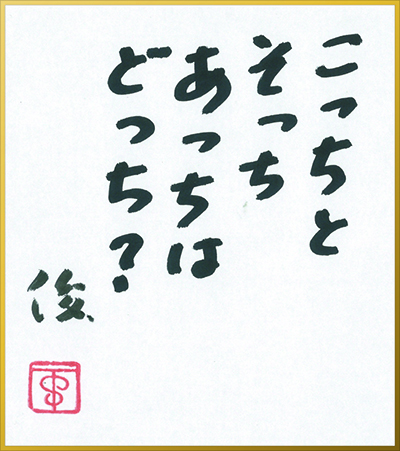 こっちと
そっち
あっちは
どっち？
俊